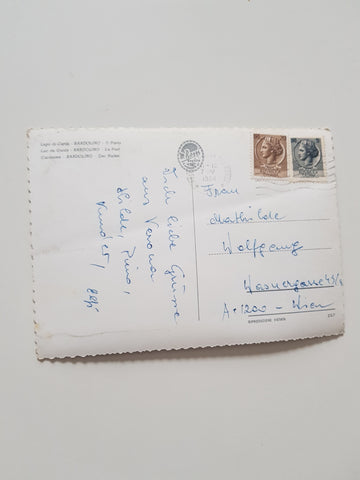 Lago di Garda - BARDOLINO - Il Porto
Lac de Garde - BARDOLINO - Le Port
Gardasee - BARDOLINO - Der Hafen
Viele liebe Grüsse
aus Verona
Hilde,
Kinder,
Frau
Mathilde
Wolfgang
A-1200-Wien
RIPRODUZIONE VIETATA